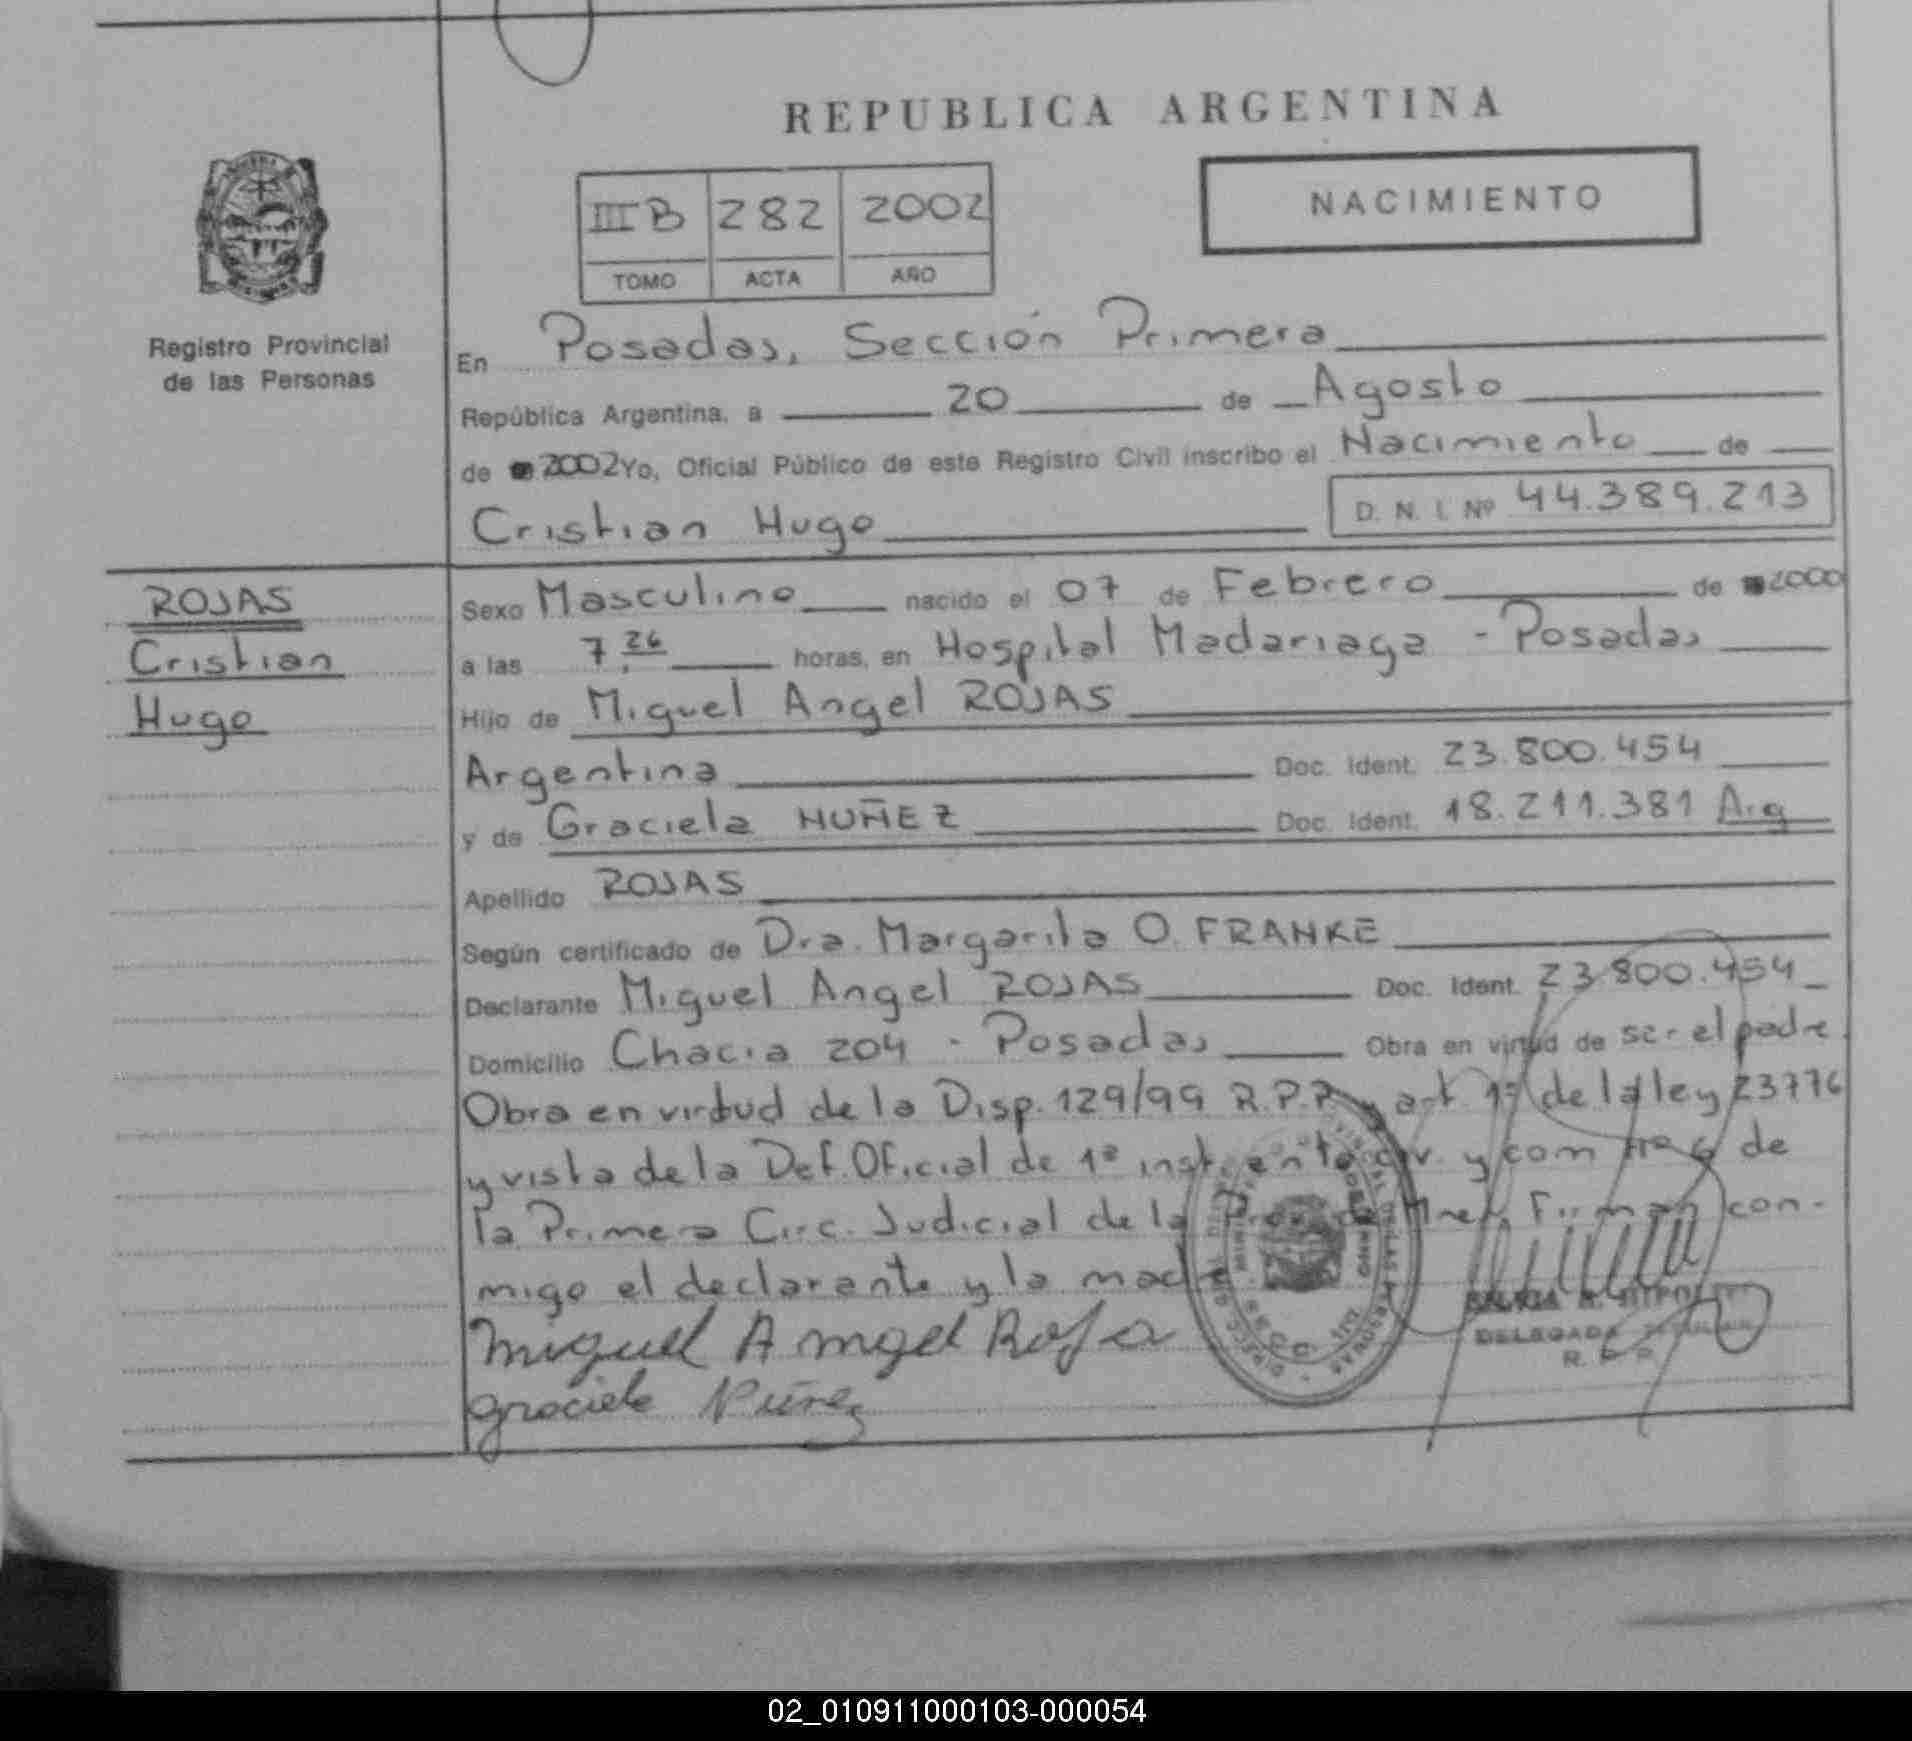 REPUBLICA ARGENTINA
NACIMIENTO
III B 282 2002
TOMO ACTA AÑO
Registro Provincial
de las Personas
En Posadas, Sección Primera
República Argentina, a 20 de Agosto
de 2002 Yo, Oficial Público de este Registro Civil inscribo el Nacimiento de
Cristian Hugo D. N. I. Nº 44.389.213
ROJAS
Cristian
Hugo
Sexo Masculino nacido el 07 de Febrero de 2000
a las 7,26 horas, en Hospital Madariaga - Posadas
Hijo de Miguel Angel ROJAS
Argentina Doc. Ident. 23.800.454
y de Graciela NUÑEZ Doc. Ident. 18.211.381 Arg
Apellido ROJAS
Según certificado de Dra. Margarita O. FRANKE
Declarante Miguel Angel ROJAS Doc. Ident. 23.800.454
Domicilio Chacra 204 - Posadas Obra en virtud de ser el padre.
Obra en virtud de la Disp. 129/99 R.P.P. y art. 1º de la ley 23776
y vista de la Def. Oficial de 1ª inst. en civ. y com Nº 6 de
la Primera Circ. Judicial de la Firman con-
migo el declarante y la madre
Miguel Angel Rojas
Graciela Núñez
DELEGADA TITULAR
R. P. P.
02_010911000103-000054